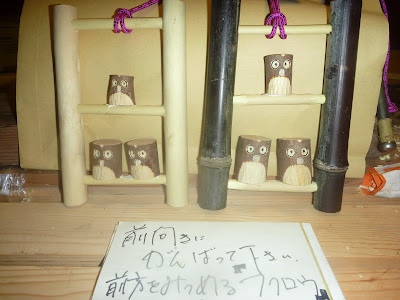 前向きに
がんばって下さい。
前方をみつめるフクロウ